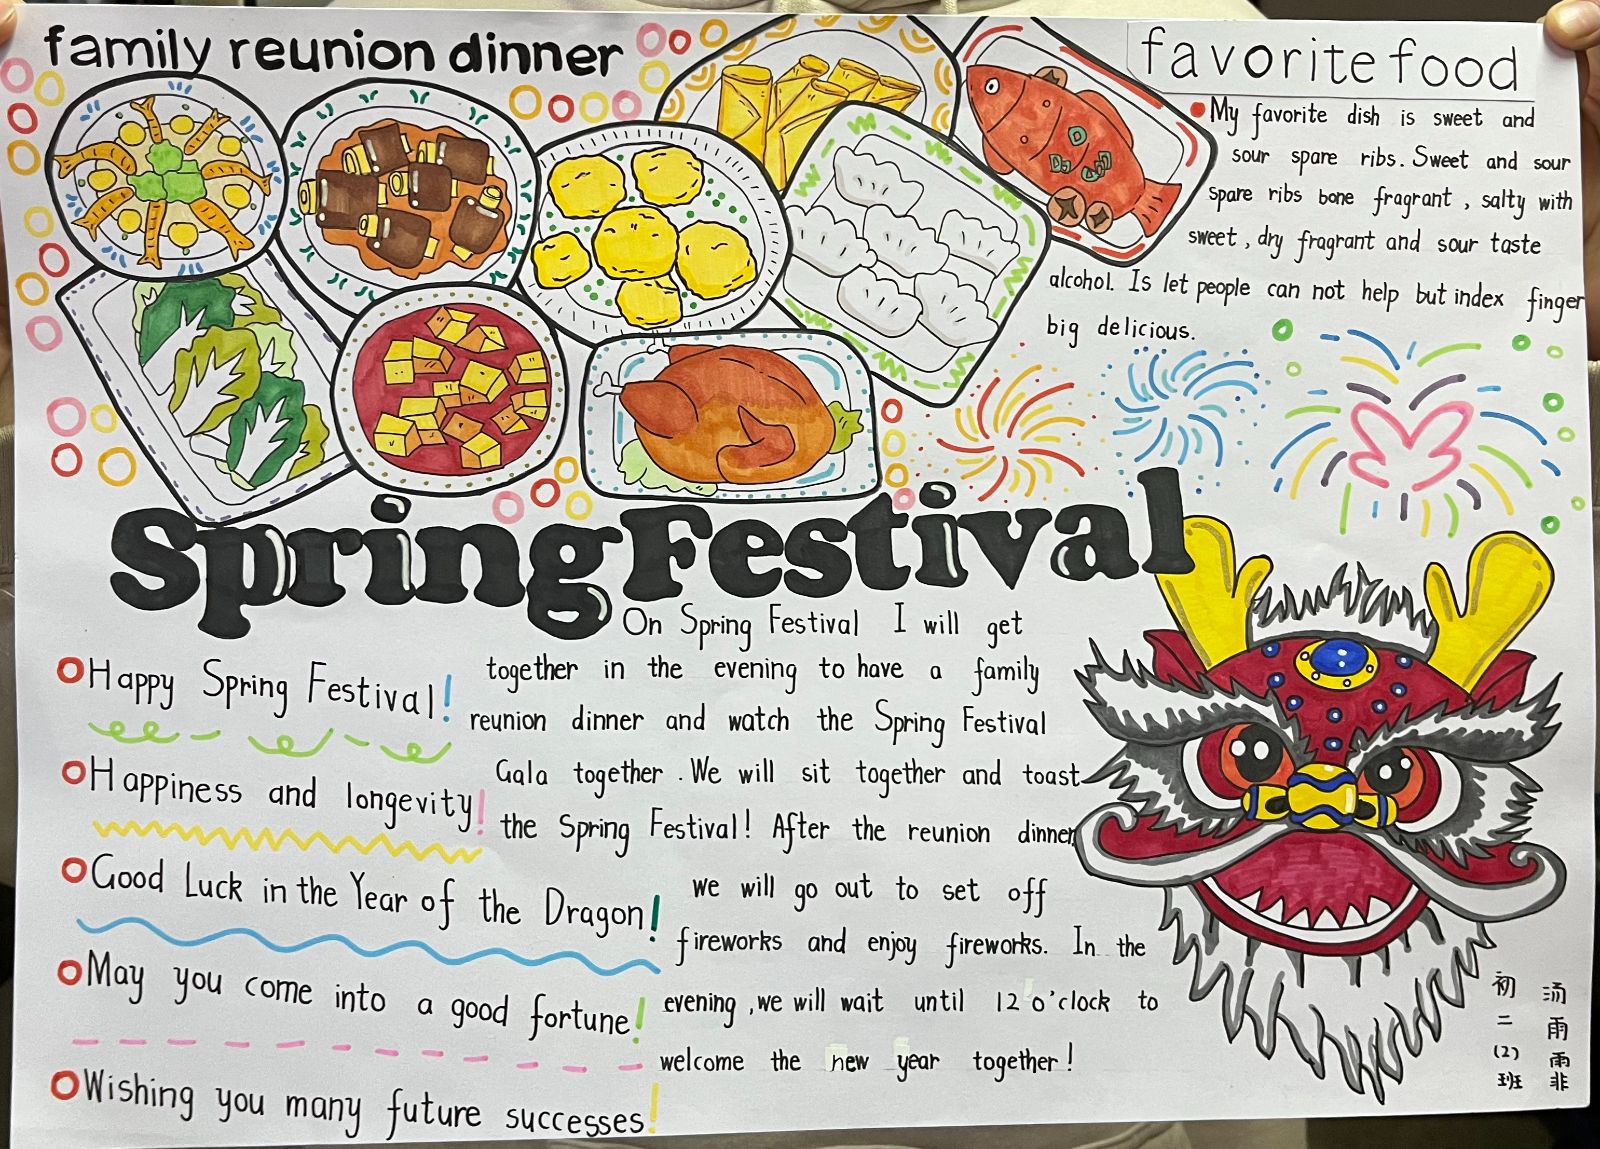 family reunion dinner
favorite food
My favorite dish is sweet and
sour spare ribs. Sweet and sour
spare ribs bone fragrant, salty with
sweet, dry fragrant and sour taste
alcohol. Is let people can not help but index finger
big delicious.
Spring Festival
Happy Spring Festival!
Happiness and longevity!
Good Luck in the Year of the Dragon!
May you come into a good fortune!
Wishing you many future successes!
On Spring Festival I will get
together in the evening to have a family
reunion dinner and watch the Spring Festival
Gala together. We will sit together and toast
the Spring Festival! After the reunion dinner,
we will go out to set off
fireworks and enjoy fireworks. In the
evening, we will wait until 12 o'clock to
welcome the new year together!
初二(2)班
汤雨霏